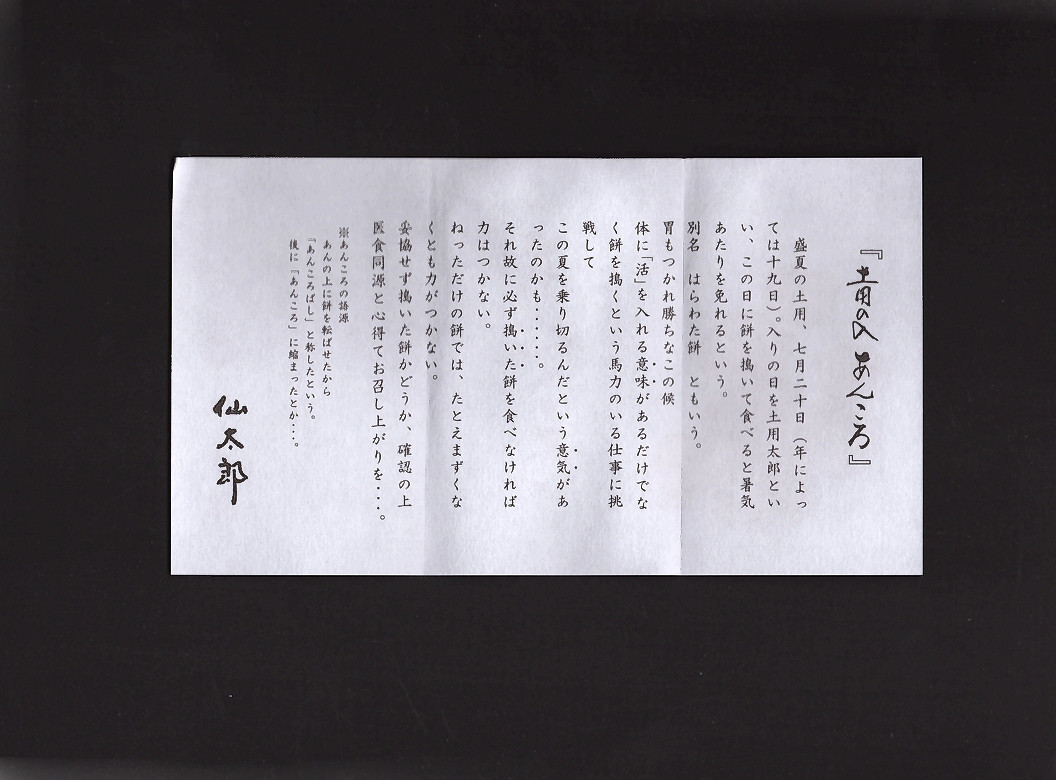 『土用の入あんころ』
盛夏の土用、七月二十日（年によっ
ては十九日）。入りの日を土用太郎とい
い、この日に餅を搗いて食べると暑気
あたりを免れるという。
別名　はらわた餅　ともいう。
胃もつかれ勝ちなこの候
体に「活」を入れる意味があるだけでな
く餅を搗くという馬力のいる仕事に挑
戦して
この夏を乗り切るんだという意気があ
ったのかも・・・・・・。
それ故に必ず搗いた餅を食べなければ
力はつかない。
ねっただけの餅では、たとえまずくな
くとも力がつかない。
妥協せず搗いた餅かどうか、確認の上
医食同源と心得てお召し上がりを・・・。
※あんころの語源
あんの上に餅を転ばせたから
『あんころばし』と称したという。
後に『あんころ』に縮まったとか・・・。
仙太郎